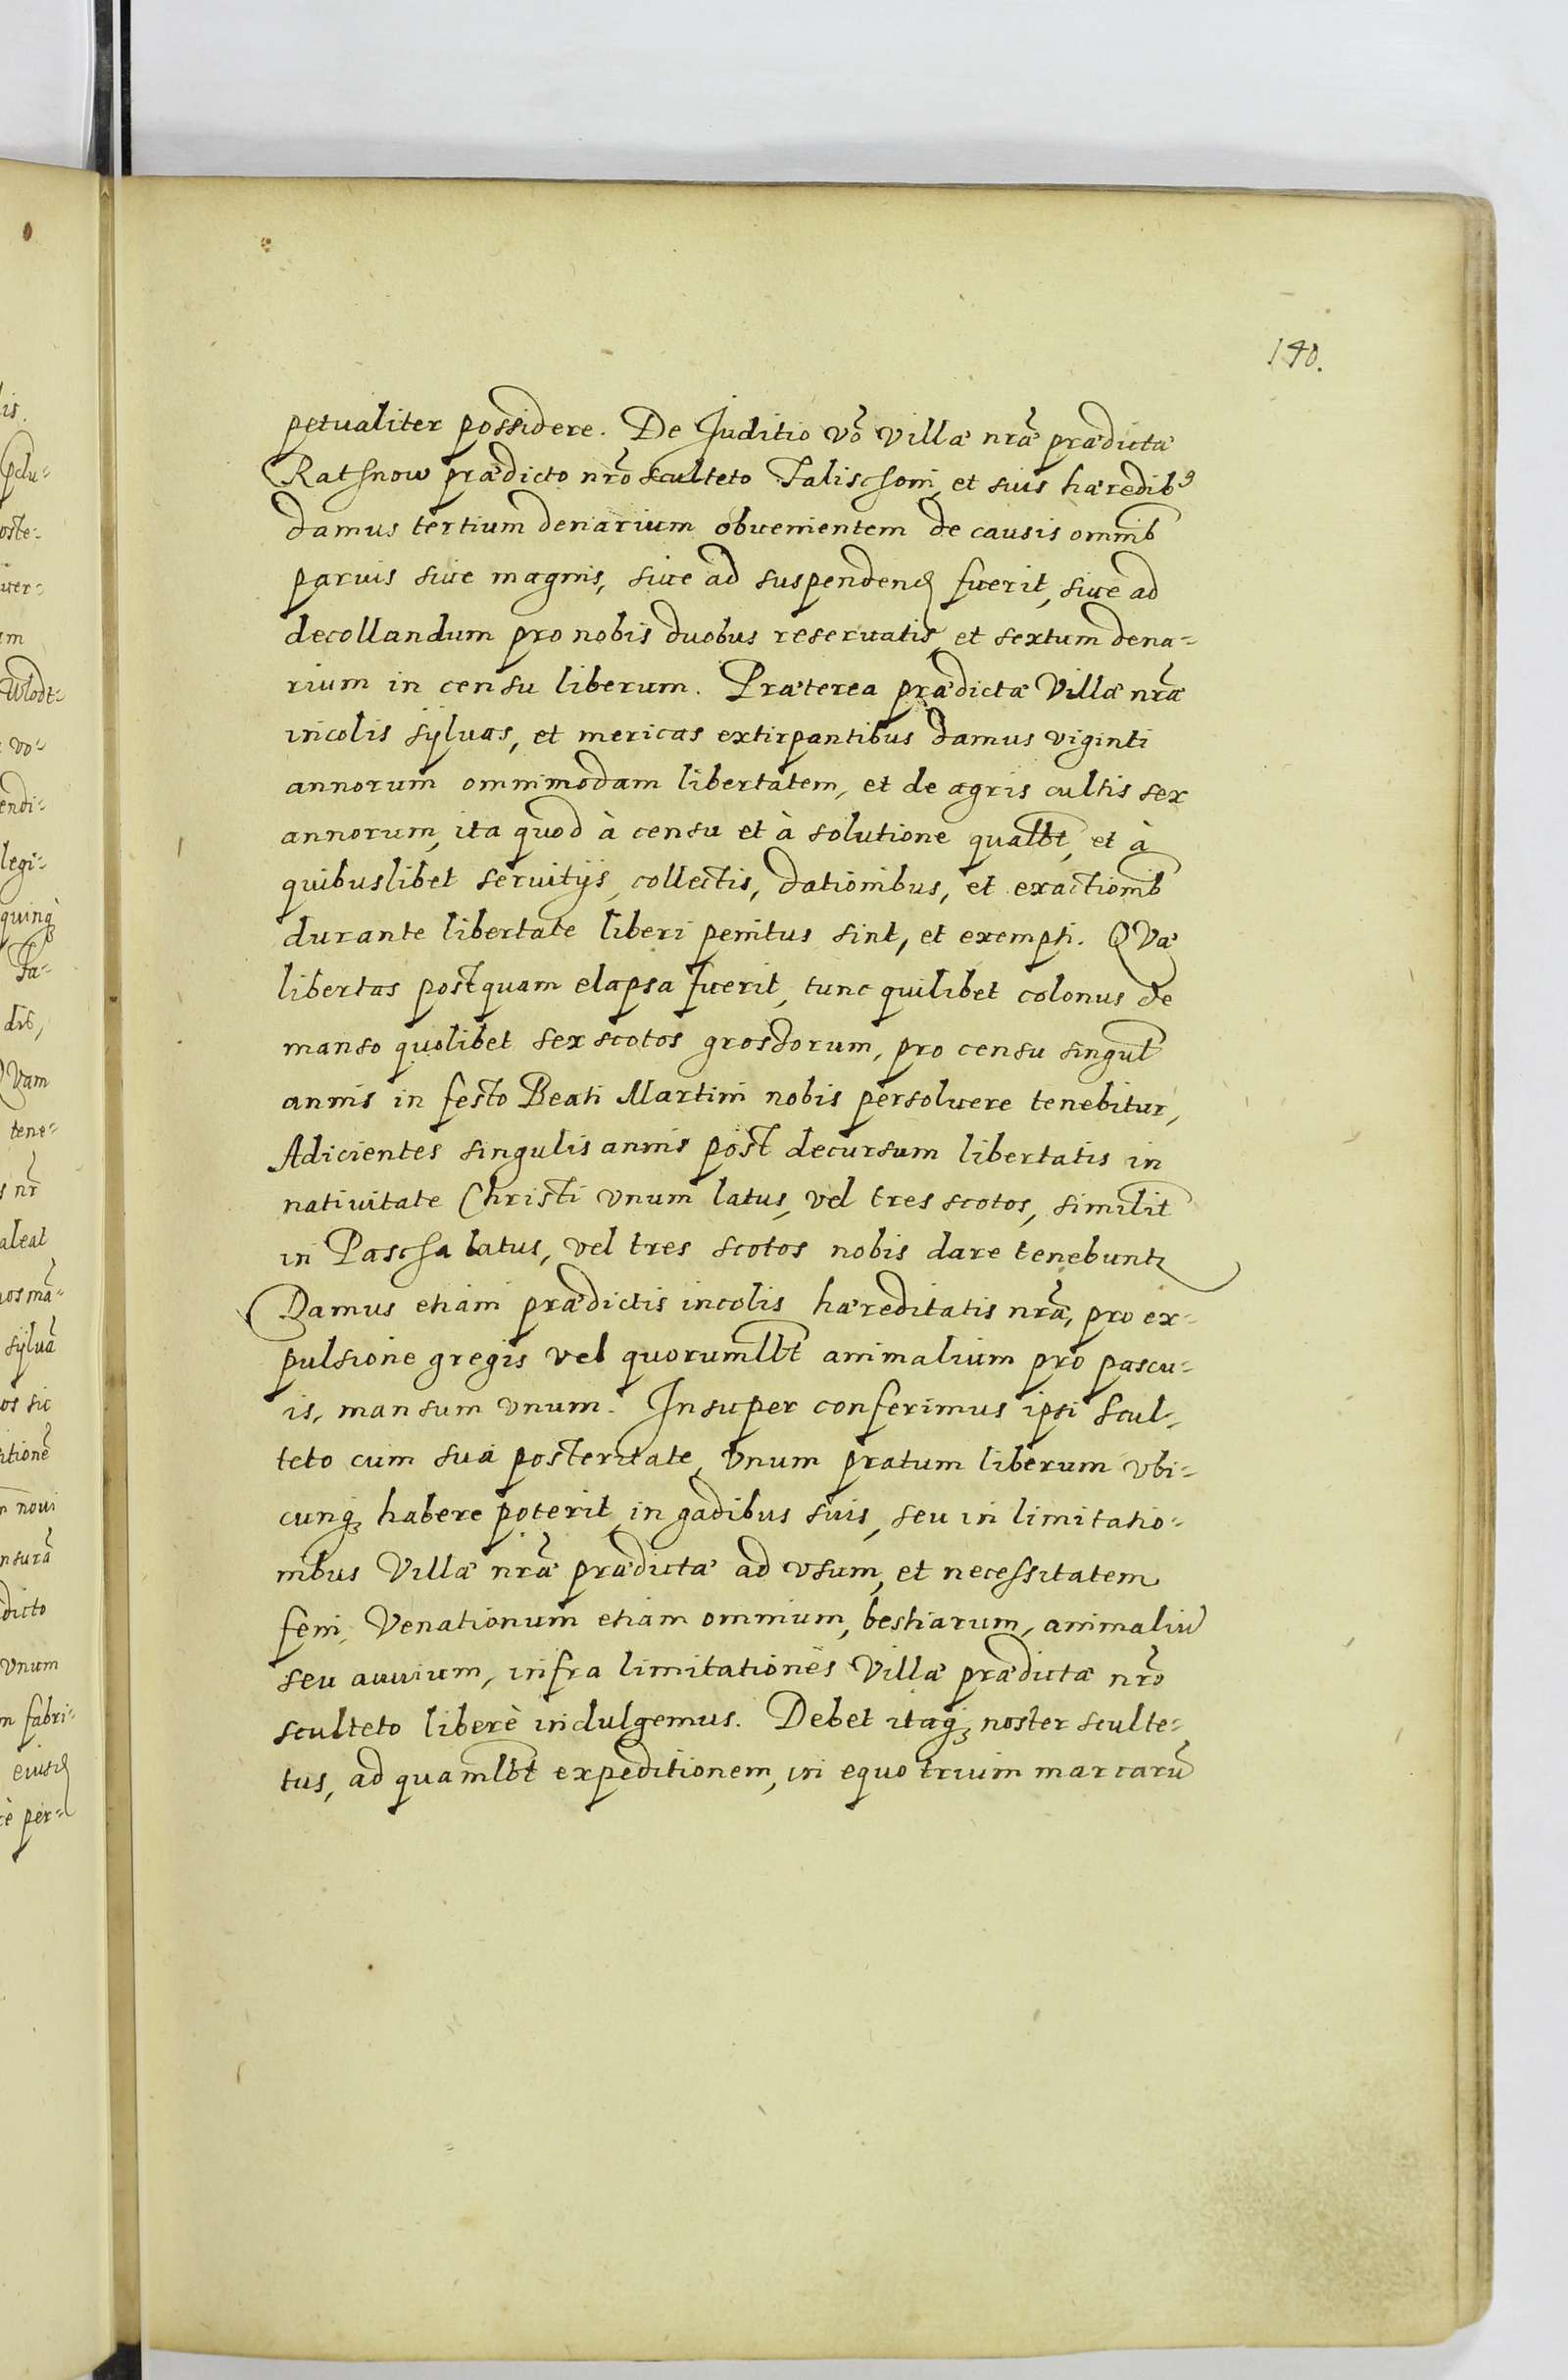 140.
petualiter possidere. De Juditio vō Villæ nræ̃ prædictæ
Rathnow prædicto nrõ sculteto Falischoni, et suis hæredibꝰ
damus tertium denarium obuenientem de causis omnib̃
paruis siue magnis, siue ad suspendend fuerit, siue ad
decollandum pro nobis duobus reseruatis, et sextum dena=
rium in censu liberum. Præterea prædictæ Villæ nræ̃
incolis sÿluas, et mericas extirpantibus damus viginti
annorum omnimodam libertatem, et de agris cultis sex
annorum, ita quod à censu et à solutione qualb̃t, et à
quibuslibet seruitijs, collectis, dationibus, et exactionib̃
durante libertate liberi penitus sint, et exempti. QVæ
libertas postquam elapsa fuerit, tunc quilibet colonus de
manso quolibet sex scotos grossorum, pro censu singul̃
annis in festo Beati Martini nobis persoluere tenebitur,
Adicientes singulis annis post decursum libertatis in
natiuitate Christi vnum latus, vel tres scotos, similit̃
in Pascha latus, vel tres scotos nobis dare tenebunt
Damus etiam prædictis incolis hæreditatis nræ̃, pro ex=
pulsione gregis vel quorumlb̃t animalium pro pascu=
is, mansum vnum. Insuper conferimus ipsi Scul=
teto cum sua posteritate, vnum pratum liberum vbi=
cunqꝫ habere poterit, in gadibus suis, seu in limitatio=
nibus Villæ nræ̃ prædictæ ad vsum, et necessitatem
feni, Venationum etiam omnium, bestiarum, animaliũ
seu auuium, infra limitationes Villæ prædictæ nrõ
sculteto liberè indulgemus. Debet itaqꝫ noster sculte=
tus, ad quamlb̃t expeditionem, in equo trium marcarũ